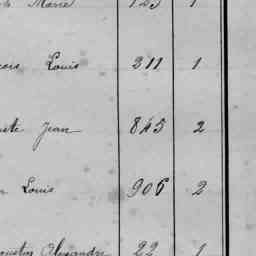 Marie 123 1
Louis 311 1
Jean 845 2
Louis 906 2
Alexandre 22 1